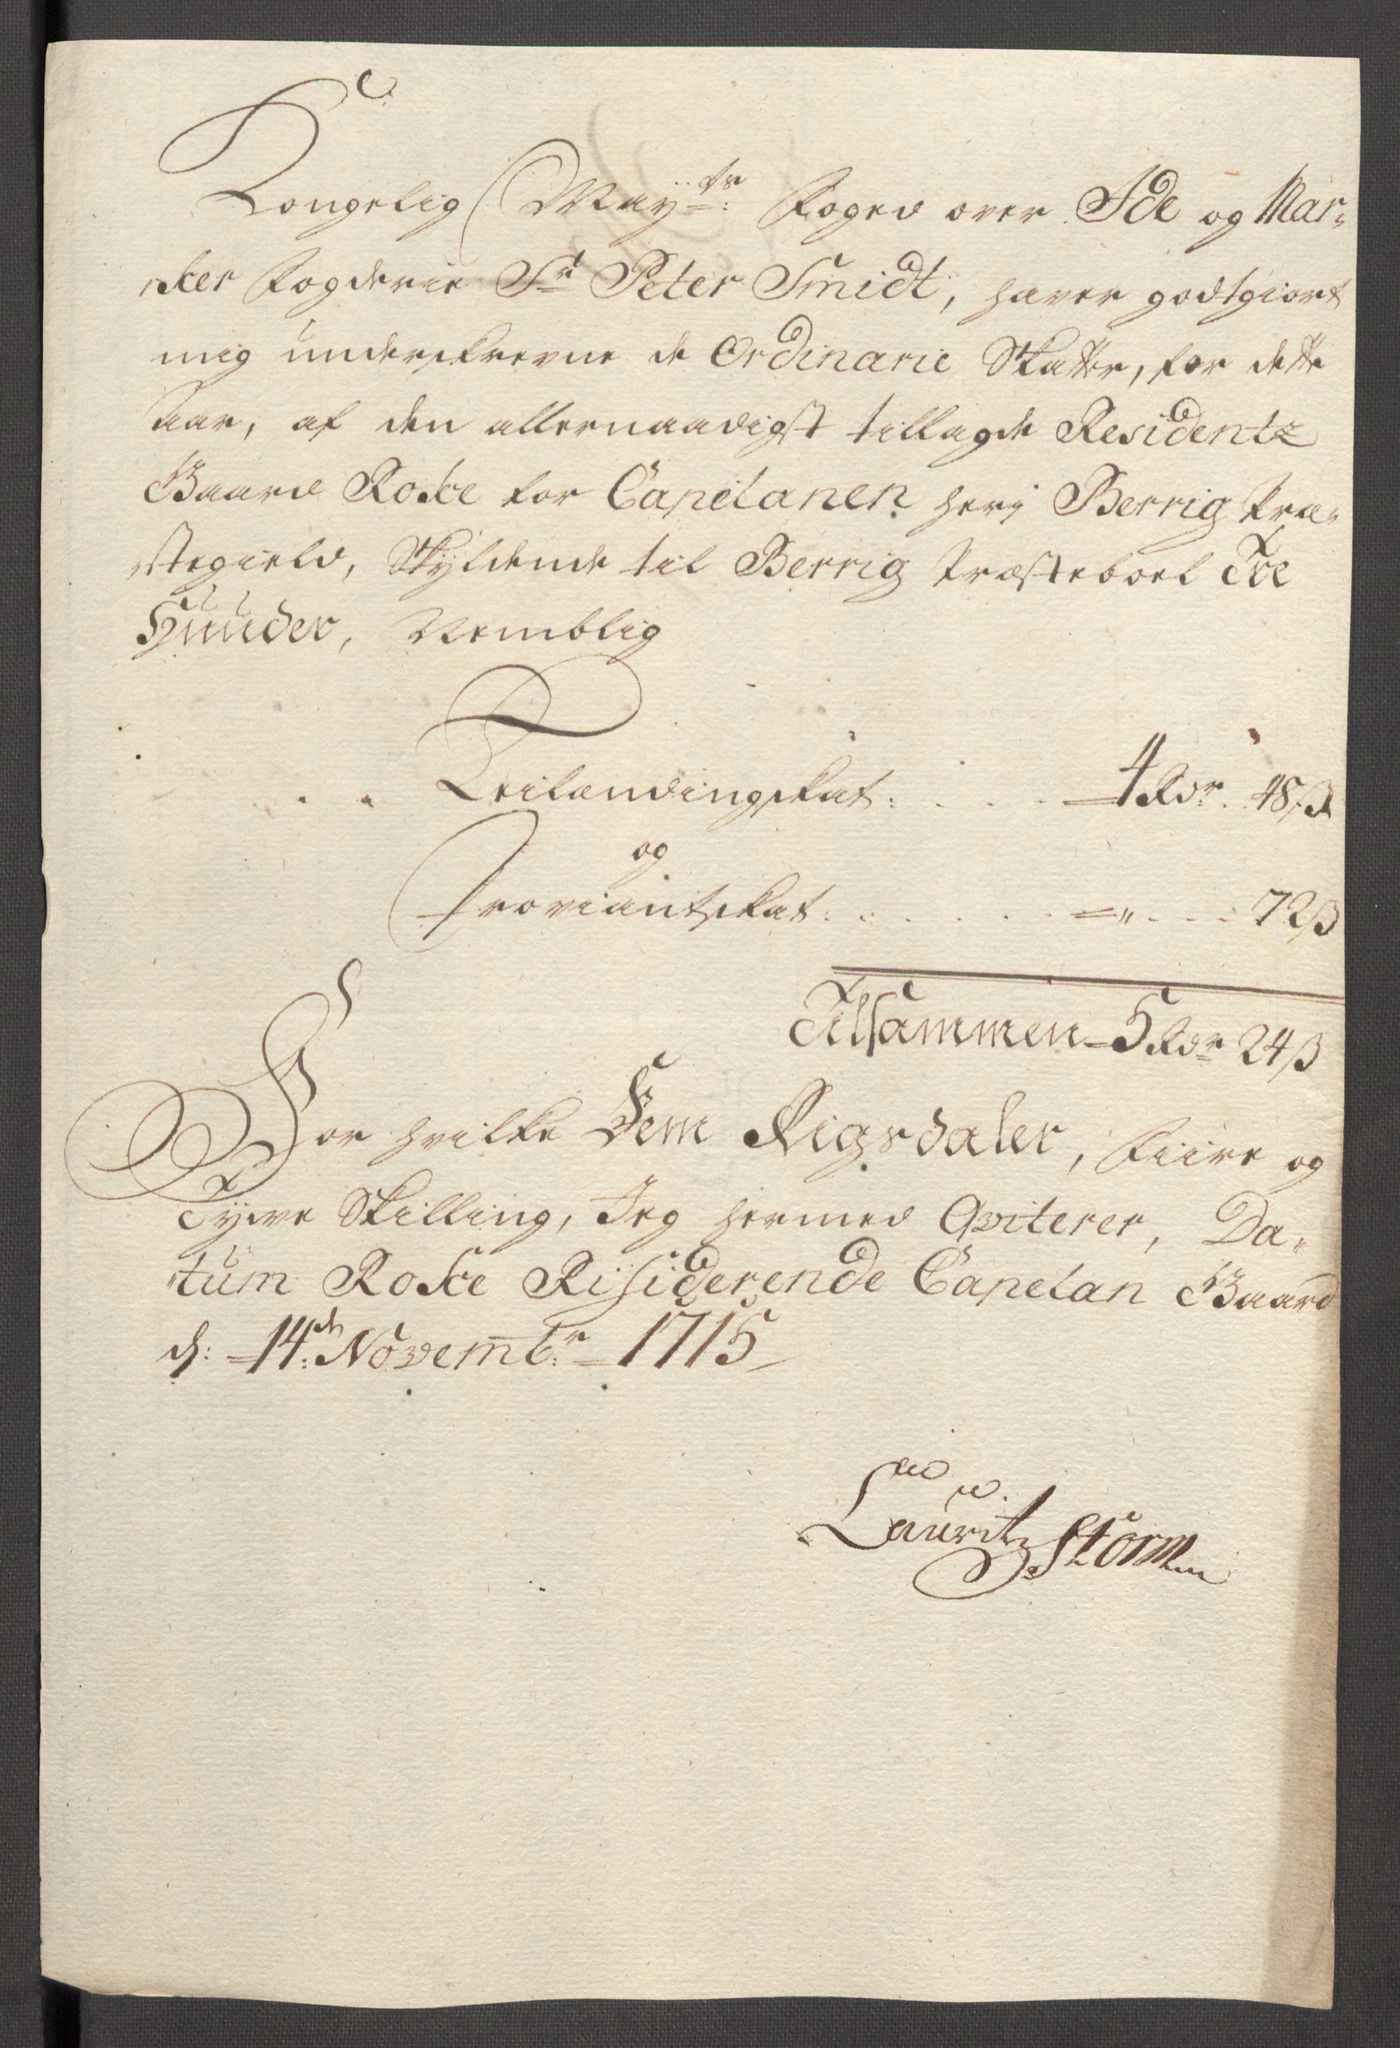 Kongelig Mayts: Foged over Ide og Mar-
ker Fogderie Sr Peter Smidt, haver godtgiort
mig underskrevne de Ordinarie Skatter, for dette
Aar, af den allernaadigst tillagde Residentz
Gaard Roske for Capelanen her i Berrig Præ-
stegield, Skyldende til Berrig Præsteboel Tre
Huuder, Nemblig
Leilændingskat: . . . . 4 Rdr. 48 ß
og
Proviantskat: . . . . . . = " . . . 72 ß
Tilsammen - 5 Rdr 24 ß
For hvilke Fem Rigsdaler, Fiire og
Tyve Skilling, Jeg hermed Qviterer, Da-
tum Roske Risiderende Capelan Gaard
d: 14de: Novembr: 1715
Lauritz Storm